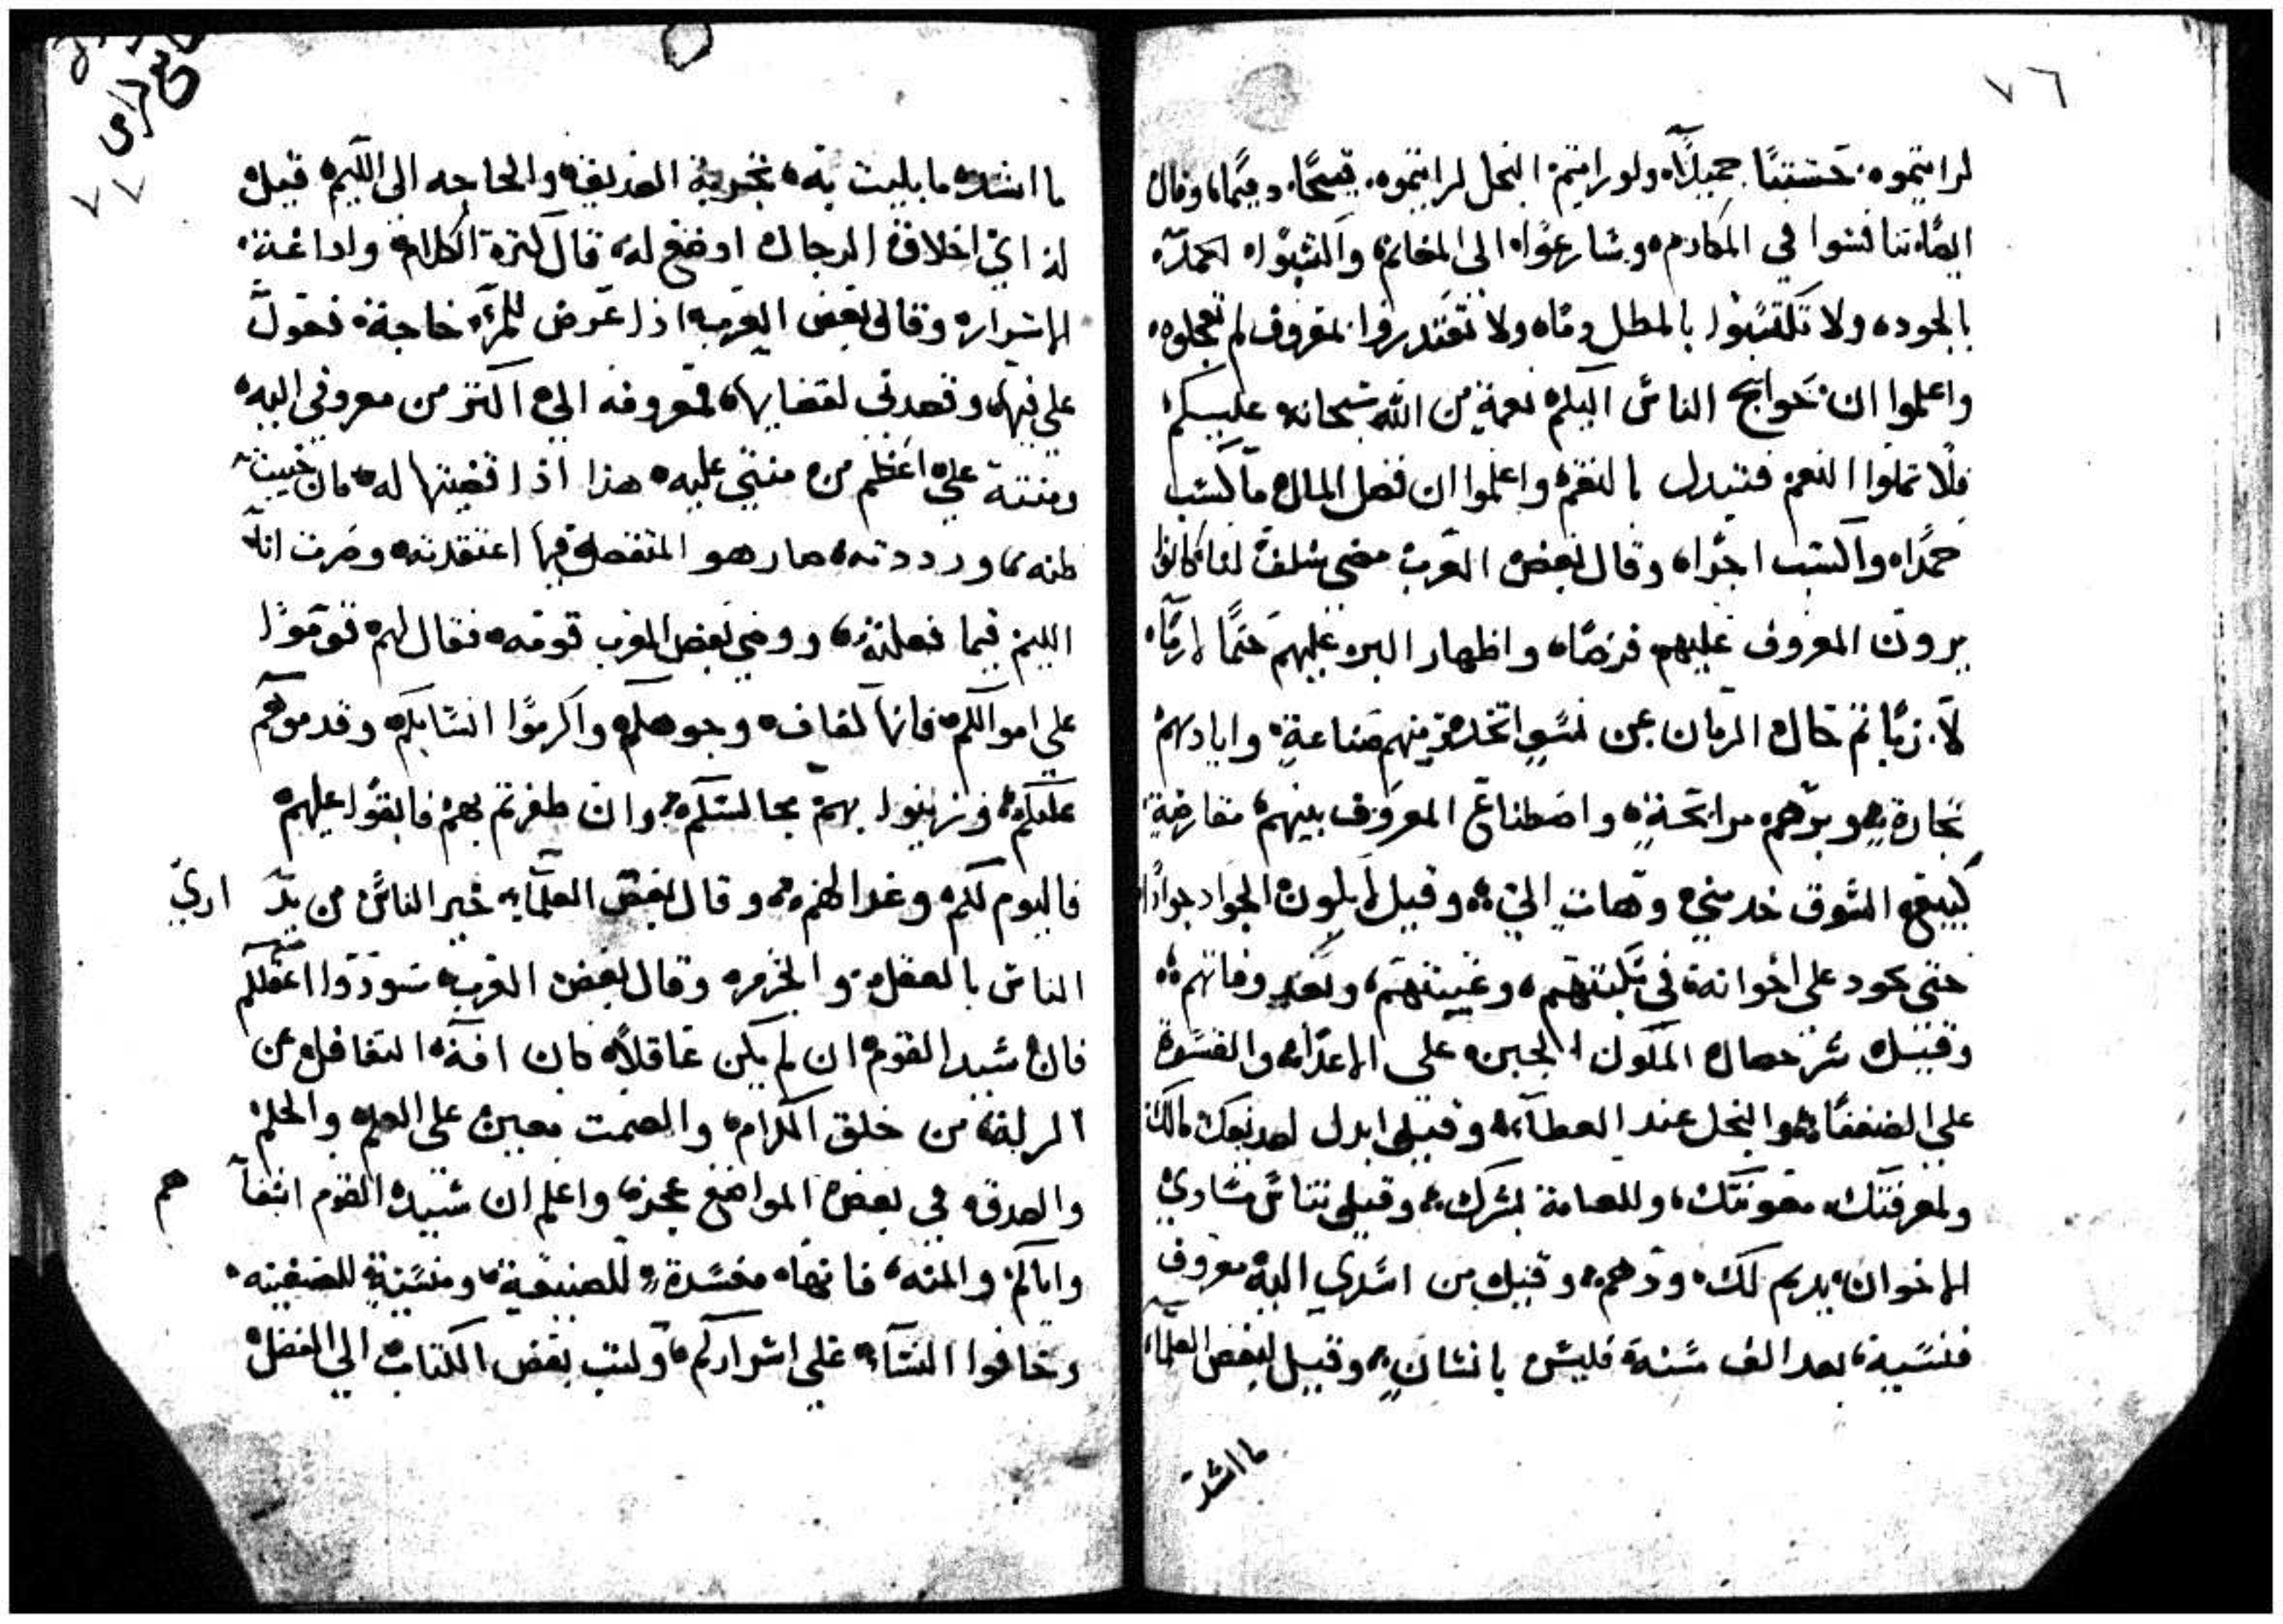 ٧٦
لرايتموه حسنًا جميلًا ولو رايتم البخل لرايتموه قبيحًا دميمًا وقال
ايضًا تنافسوا في المكارم وسارعوا الى المغانم واكتسبوا الحمد
بالجود ولا تكتسبوا بالمطل ذمًا ولا تعتدروا بمعروف لم تعجلوه
واعلموا ان حوايج الناس اليكم نعمة من الله سبحانه عليكم
فلا تملوا النعم فتبدل بالنقم واعلموا ان فضل المال ما اكسب
حمدًا واكسب اجرًا وقال بعض العرب مضى سلف لنا كانوا
يرون المعروف عليهم فرضًا واظهار البر عليهم حتمًا
لازبًا ثم حال الزمان عن نسو اتخدو مننهم صناعة واياديهم
تجارة وبرهم مرابحة واصطناع المعروف بينهم مقارضة
كبيع السوق خد مني وهات الي وقيل لا يكون الجواد جوادًا
حتى يجود على اخوانه في نكبتهم وغيبتهم وبعد وفاتهم
وقيل شر خصال الملوك الجبن على الاعدا والقسوة
على الضعفا والبخل عند العطآ وقيل ابدل لصديقك مالك
ولمعرفتك معونتك وللعامة بشرك وقيل تناس مساوي
الاخوان يديم لك ودهم وقيل من اسدي اليه معروف
فنسيه بعد الف سنة فليس بانسان وقيل لبعض العلمآ
ما اشد
٧٧
ما اشد ما بليت به تجربة الصديق والحاجه الى اللييم قيل
له اي اخلاق الرجال اوضع له قال كثرة الكلام واداعة
الاسرار وقال بعض العرب اذا عرض للمرء حاجة فعول
علي فيها وقصدني لقضايها فمعروفه الي اكثر من معروفي اليه
ومنته علي اعظم من منتي عليه هذا اذا قضيتها له فان خيبت
ظنه ورددته صار هو المتفضل فيما اعتقدته وصرت انا
اللييم فيما فعلته ووصى بعض العرب قومه فقال لهم قوموا
على اموالكم فانها لفاف وجوهكم واكرموا انسابكم وقدموهم
عليكم وزينوا بهم مجالسكم وان ظفرتم بهم فابقوا عليهم
فاليوم لكم وغدا لهم وقال بعض العلمآ خير الناس من
الناس بالعقل والحزم وقال بعض العرب سودوا اعقلكم
فان سيد القوم ان لم يكن عاقلًا كان افة التغافل عن
الزلة من خلق الكرام والصمت معين على العلم والحلم
والصدق في بعض المواضع عجز واعلم ان سيد القوم اشقآ هم
واياكم والمنه فانها مفسدة للصنيعة ومنسية للضغينه
وخافوا النسآ على اسراركم وكتب بعض الكتاب الى الفضل